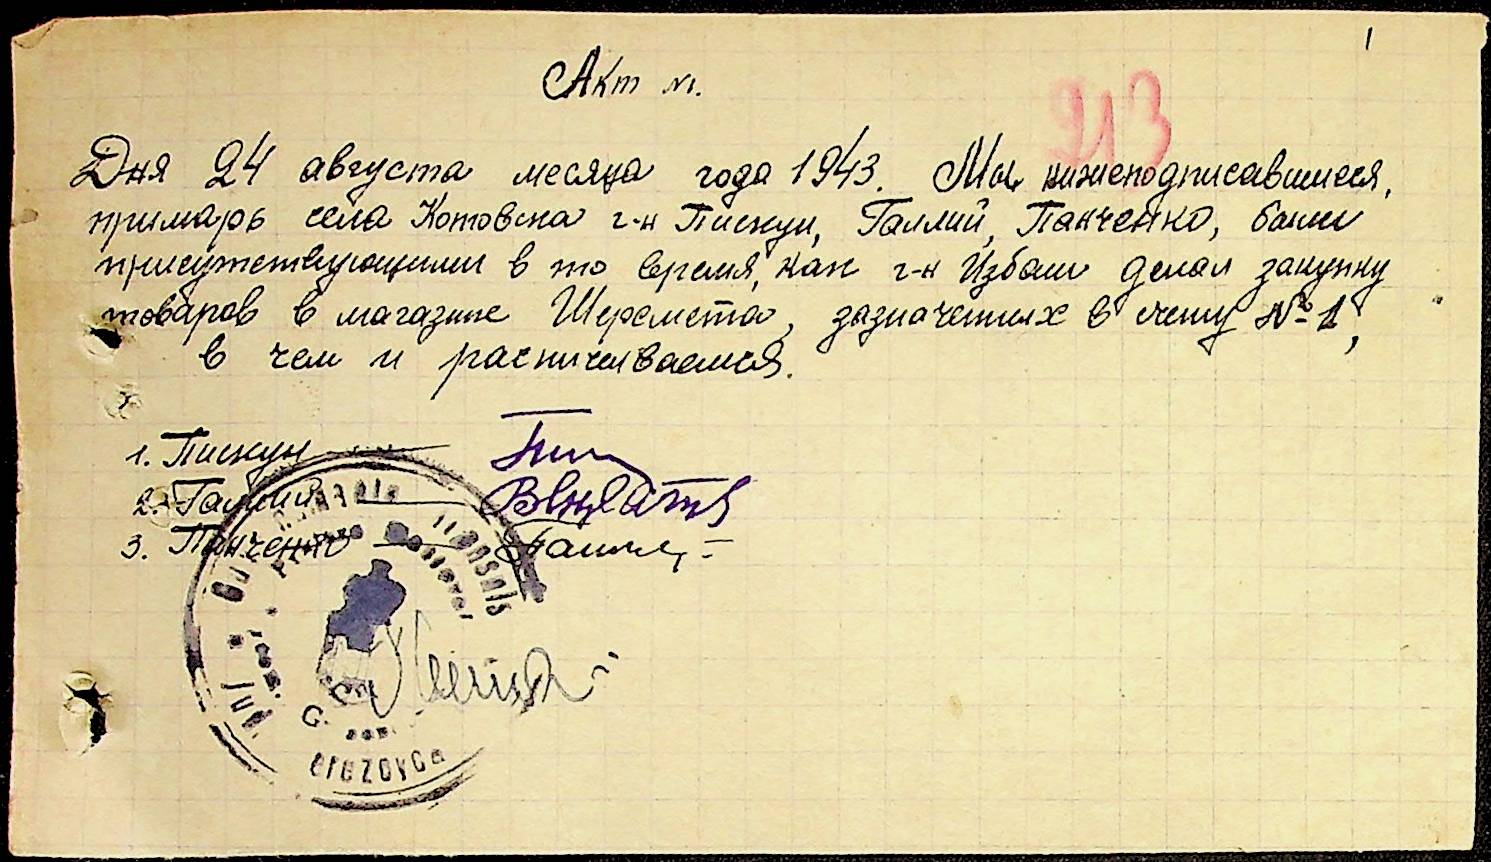 1
Акт №1.
213
Дня 24 августа месяца года 1943. Мы, нижеподписавшиеся,
примарь села Котовска г-н Пискун, Галлий, Панченко, были
присутствующими в то время, как г-н Избаш делал закупку
товаров в магазине Шеремета, зазначенных в счету № 1,
в чем и расписываемся.
1. Пискун
2. Галлий
3. Панченко